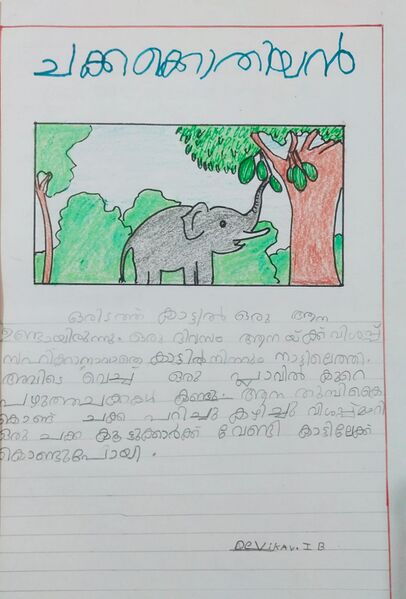 ചക്കക്കൊതിയൻ
ഒരിടത്ത് കാട്ടിൽ ഒരു ആന
ഉണ്ടായിരുന്നു. ഒരു ദിവസം ആനയ്ക്ക് വിശപ്പ്
സഹിക്കാനാവാതെ കാട്ടിൽ നിന്നും നാട്ടിലെത്തി.
അവിടെ വെച്ച് ഒരു പ്ലാവിൽ കുറെ
പഴുത്തചക്കകൾ കണ്ടു. ആന തുമ്പികൈ
കൊണ്ട് ചക്ക പറിച്ചു കഴിച്ചു വിശപ്പ്മാറി
ഒരു ചക്ക കൂട്ടുകാർക്ക് വേണ്ടി കാട്ടിലേക്ക്
കൊണ്ടുപോയി.
Devika.V. I B